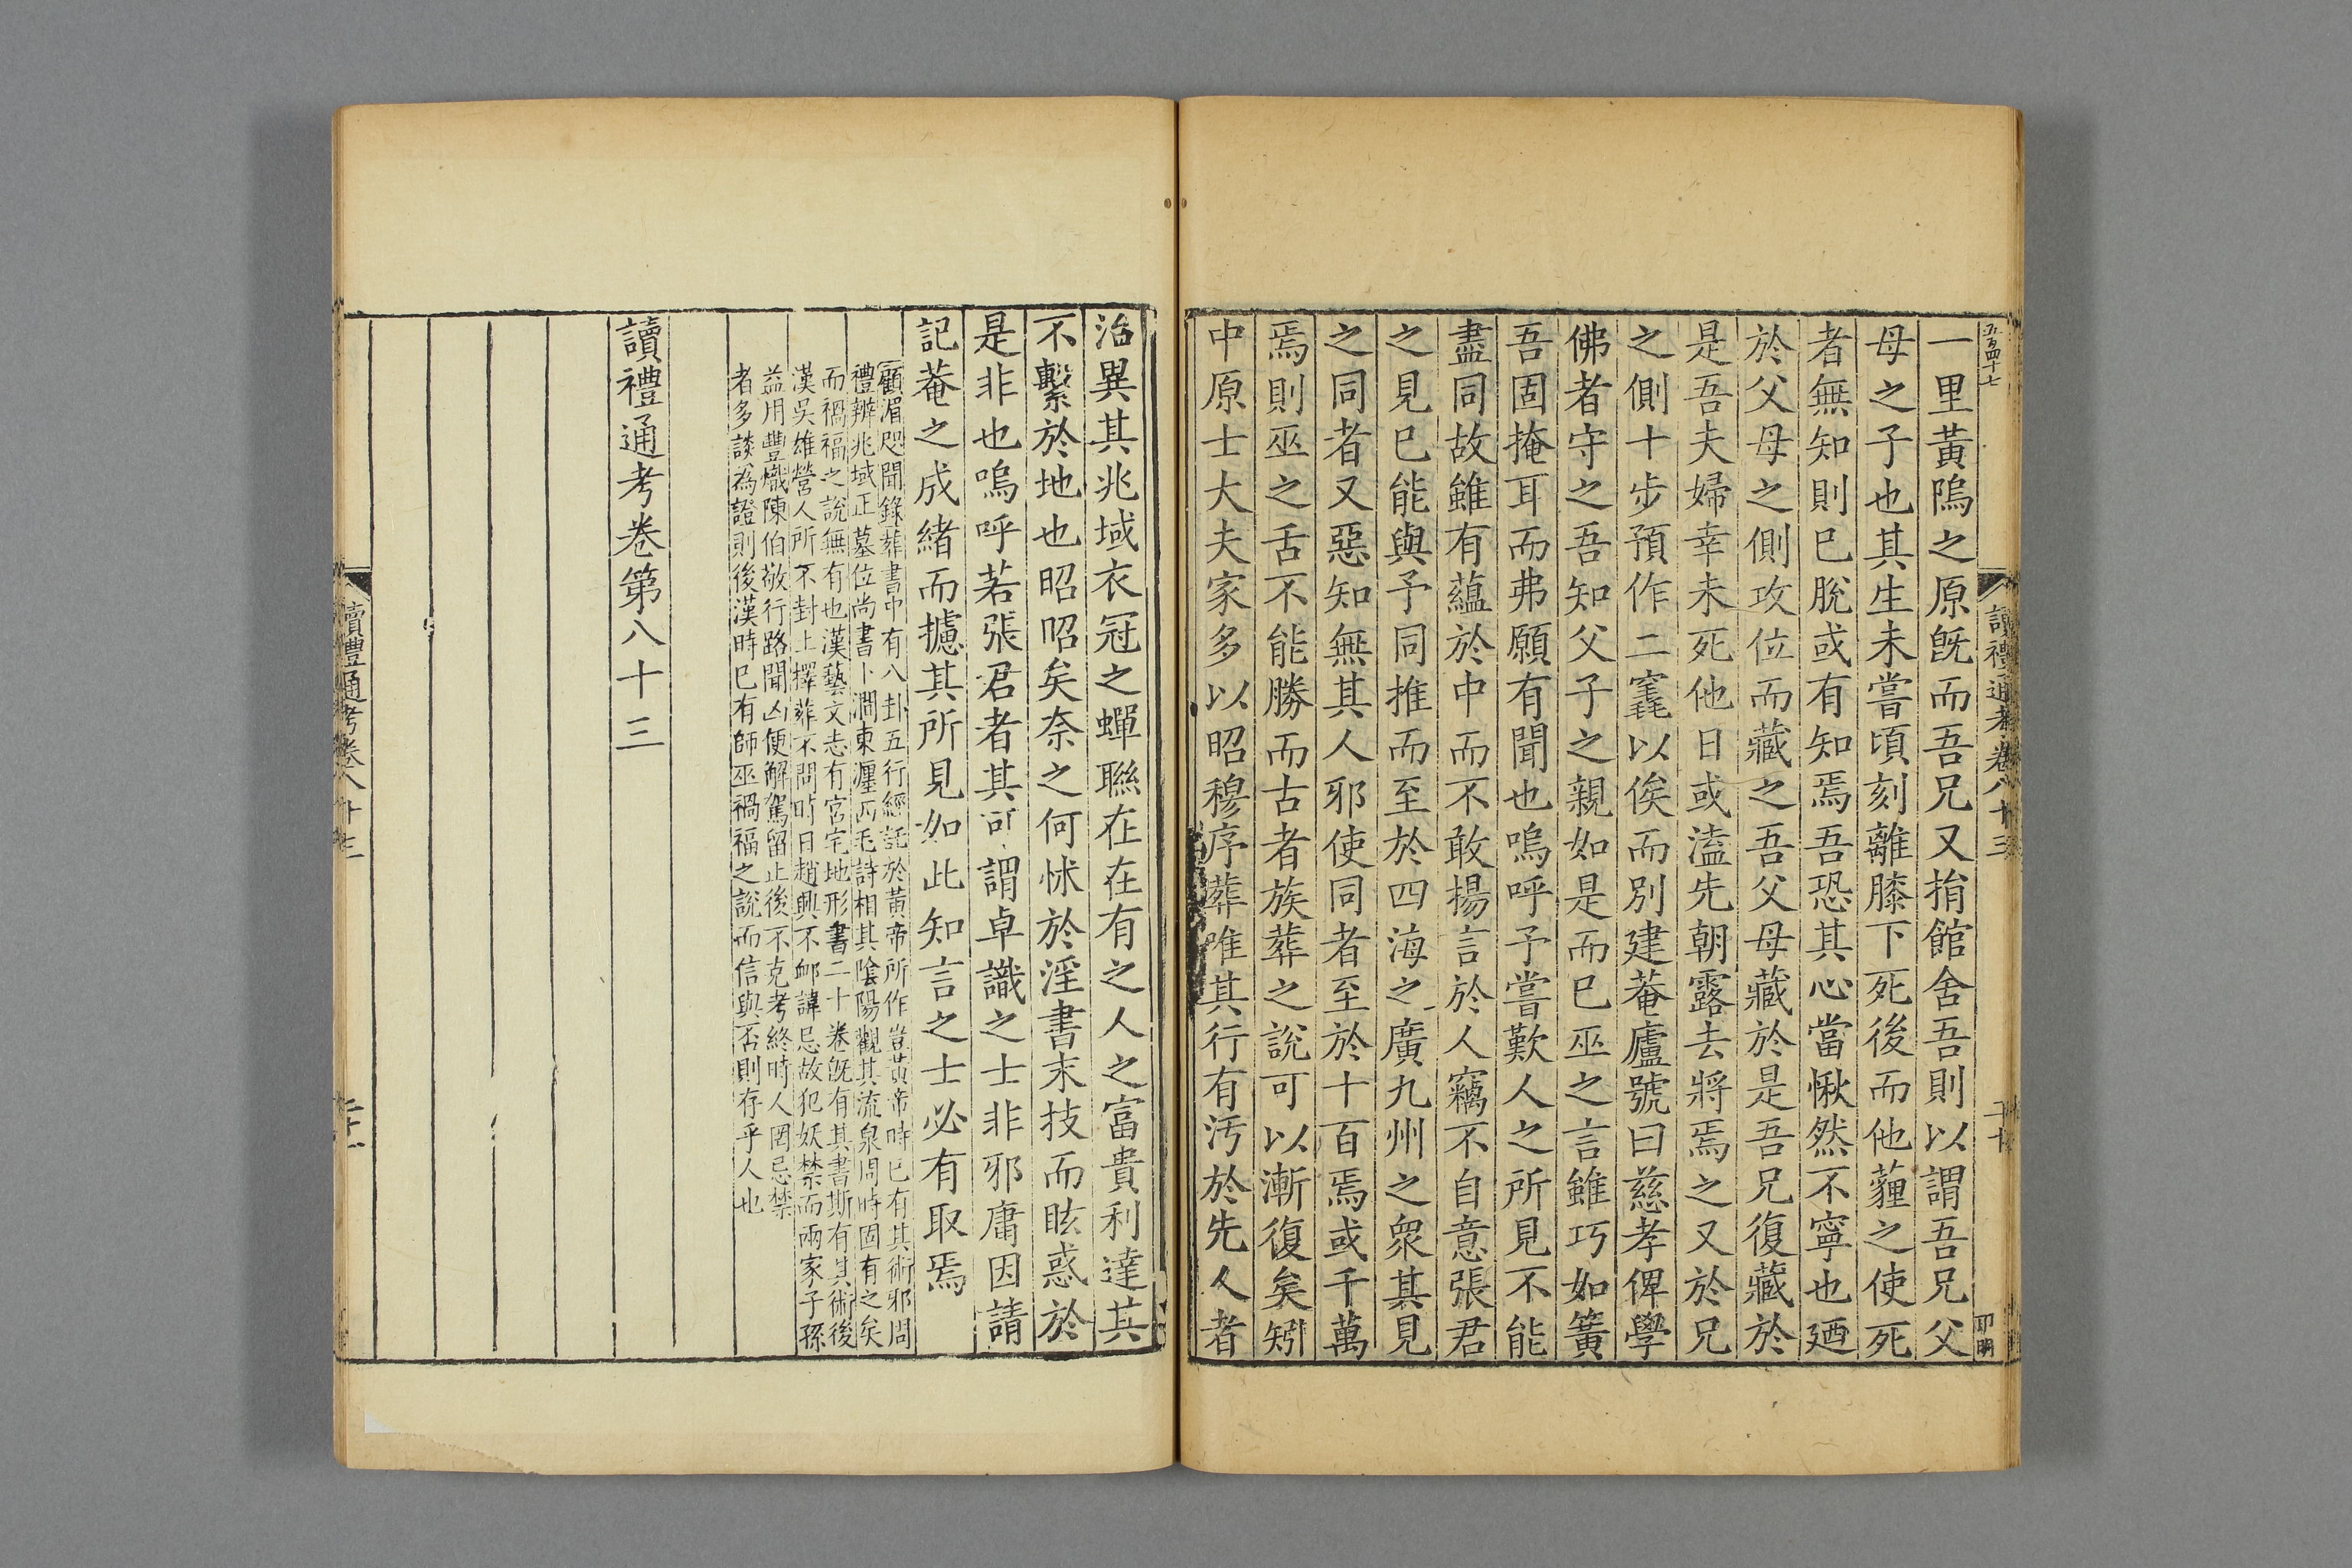 五百四十七
讀禮通考卷八十三
二十
一里黃隖之原旣而吾兄又捐館舍吾則以謂吾兄父
母之子也其生未嘗頃刻離膝下死後而他薶之使死
者無知則已脫或有知焉吾恐其心當愀然不寧也廼
於父母之側攻位而藏之吾父母藏於是吾兄復藏於
是吾夫婦幸未死他日或溘先朝露去將焉之又於兄
之側十步預作二窀以俟而別建菴廬號曰慈孝俾學
佛者守之吾知父子之親如是而已巫之言雖巧如簧
吾固掩耳而弗願有聞也嗚呼予嘗歎人之所見不能
盡同故雖有蘊於中而不敢揚言於人竊不自意張君
之見已能與予同推而至於四海之廣九州之衆其見
之同者又惡知無其人邪使同者至於十百焉或千萬
焉則巫之舌不能勝而古者族葬之說可以漸復矣矧
中原士大夫家多以昭穆序葬唯其行有汚於先人者
治異其兆域衣冠之蟬聯在在有之人之富貴利達其
不繫於地也昭昭矣奈之何怵於淫書末技而眩惑於
是非也嗚呼若張君者其可謂卓識之士非邪庸因請
記菴之成緒而攄其所見如此知言之士必有取焉
顧湄咫聞錄葬書中有八卦五行經託於黃帝所作豈黃帝時已有其術邪周
禮辨兆域正墓位尚書卜澗東瀍西毛詩相其陰陽觀其流泉周時固有之矣
而禍福之說無有也漢藝文志有宮宅地形書二十卷旣有其書斯有其術後
漢吳雄營人所不封土擇葬不問時日趙興不卹諱忌故犯妖禁而兩家子孫
益用豐熾陳伯敬行路聞凶便解駕留止後不克考終時人罔忌禁
者多談為證則後漢時已有師巫禍福之說而信與否則存乎人也
讀禮通考卷第八十三
讀禮通考卷八十三